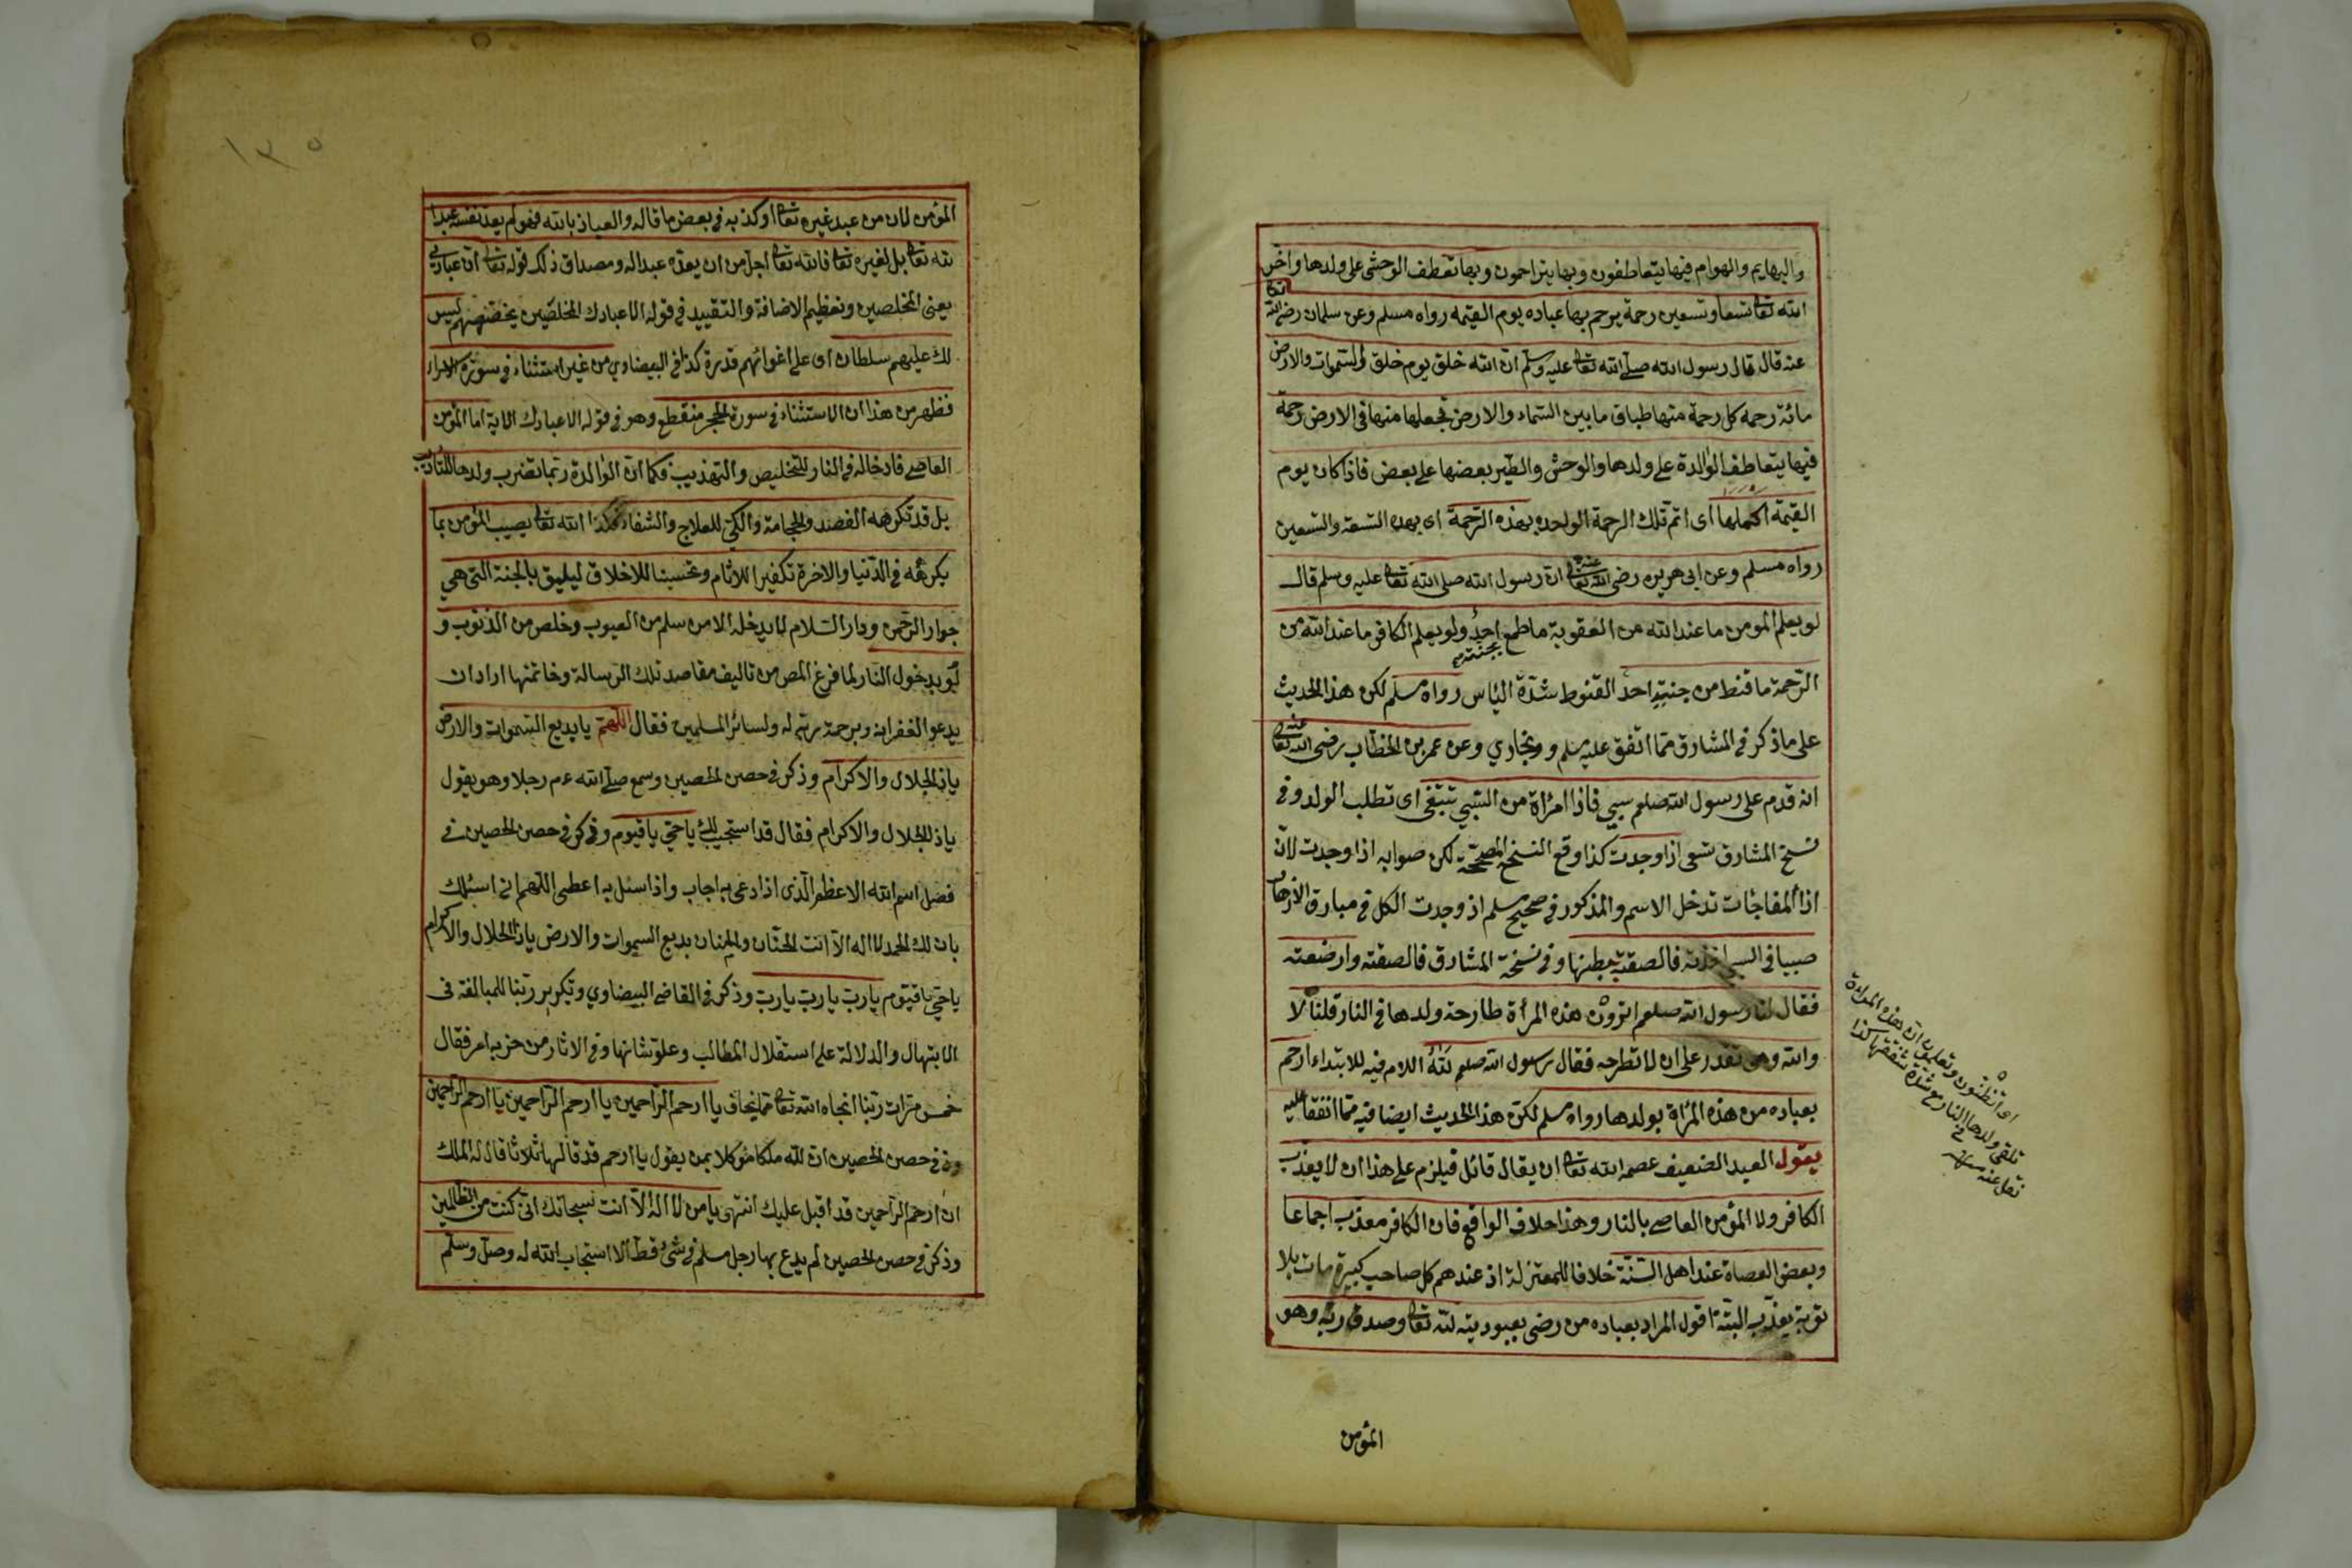 والبهايم والهوام فيها يتعاطفون وبها يتراحمون وبها تعطف الوحشى على ولدها واخر
الله تعالى تسعا وتسعين رحمة يرحم بها عباده يوم القيمة رواه مسلم وعن سلمان رضى الله تعالى
عنه قال قال رسول الله صلى الله تعالى عليه وسلم ان الله خلق يوم خلق السموات والارض
مائة رحمة كل رحمة منها طباق ما بين السماء والارض فجعلها منها فى الارض رحمة
فيها يتعاطف الوالدة على ولدها والوحش والطير بعضها على بعض فاذا كان يوم
القيمة اكملها اى اتم تلك الرحمة الواحدة بهذه الرحمة اى بهذه التسعة والتسعين
رواه مسلم وعن ابى هريره رضى الله تعالى عنه ان رسول الله صلى الله تعالى عليه وسلم قال
لو يعلم المومن ما عند الله من العقوبة ما طمع بجنته احد ولو يعلم الكافر ما عند الله من
الرحمة ما قنط من جنته احد القنوط شدة الياس رواه مسلم لكن هذا الحديث
على ما ذكر فى المشارق مما اتفق عليه مسلم و وبخاري وعن عمر بن الخطاب رضى الله تعالى عنه
انه قدم على رسول الله صلعم سبي فاذا امرأة من السبي تبتغى اى تطلب الولد وفى
نسخ المشارق تسعى اذا وجدت كذا وقع النسخ المصححة لكن صوابه اذا وجدت لان
اذا المفاجات تدخل الاسم والمذكور فى صحيح مسلم اذ وجدت الكل فى مبارق الازهار
صبيا فى السبي اخذته فالصقته ببطنها وفى نسخة المشارق فالصقته وارضعته
فقال لنا رسول الله صلعم اترون هذه المرأة طارحة ولدها فى النار قلنا لا
والله وهى تقدر على ان لا تطرحه فقال رسول الله صلعم لله اللام فيه للابتداء ارحم
بعباده من هذه المرأة بولدها رواه مسلم لكن هذا الحديث ايضا فيه مما اتفقا عليه
يقول العبد الضعيف عصمه الله تعالى ان يقال قائل فيلزم على هذا ان لا يعذب
الكافر ولا المؤمن العاصى بالنار وهذا خلاف الواقع فان الكافر معذب اجماعا
وبعض العصاة عند اهل السنة خلافا للمعتزلة اذ عندهم كل صاحب كبيرة مات بلا
توبة يعذب البتة اقول المراد بعباده من رضى بعبوديته لله تعالى وصدق ربه وهو
المؤمن
اى اتظنون وتعلمون ان هذه المرأة
تلقى ولدها فى النار مع شدة شفقتها كذا
نقل عنه
١٣٥
المؤمن لان من عبد غيره تعالى او كذبه فى بعض ما قاله والعياذ بالله فهو لم يعد نفسه عبدا
لله تعالى بل لغيره تعالى فالله تعالى اجل من ان يعده عبدا له ومصداق ذلك قوله تعالى ان عبادى
يعنى المخلصين وتعظيم الاضافة والتقييد فى قوله الا عبادك المخلصين يخصصهم ليس
لك عليهم سلطان اى على اغوائهم قدرة كذا فى البيضاوي من غير استثناء فى سورة الاسراء
فظهر من هذا ان الاستثناء فى سورة الحجر منقطع وهو فى قوله الا عبادك الاية اما المؤمن
العاصى فادخاله فى النار للتخليص والتهذيب فكما ان الوالدة ربما تضرب ولدها للتاديب
بل قد تكرهه الفصد والحجامة والكي للعلاج والشفاء فكذا الله تعالى يصيب المؤمن بما
يكرهه فى الدنيا والاخرة تكفيرا للاثام وتحسينا للاخلاق ليليق بالجنة التى هي
جوار الرحمن ودار السلام لا يدخله الا من سلم من العيوب وخلص من الذنوب و
لو بدخول النار لما فرغ المص من تاليف مقاصد تلك الرسالة وخاتمتها اراد ان
يدعو الغفرانه وبرحمة ربه له ولسائر المسلمين فقال اللهم يا بديع السموات والارض
ياذا الجلال والاكرام وذكر فى حصن الحصين وسمع صلى الله ءم رجلا وهو يقول
ياذا الجلال والاكرام فقال قد استجيب لك يا حي يا قيوم وذكر فى حصن الحصين فى
فضل اسم الله الاعظم الذى اذا دعى به اجاب واذا سئل به اعطى اللهم انى اسئلك
بان لك الحمد لا اله الا انت الحنان والمنان بديع السموات والارض ياذا الجلال والاكرام
يا حي يا قيوم يا رب يا رب يا رب وذكر فى القاضى البيضاوي وتكرير ربنا للمبالغة فى
الابتهال والدلالة على استقلال المطالب وعلو شانها وفى الاثار من حزبه امر فقال
خمس مرات ربنا انجاه الله تعالى مما يخاف يا ارحم الراحمين يا ارحم الراحمين يا ارحم الراحمين
وفى حصن الحصين ان لله ملكا موكلا بمن يقول يا ارحم قد قالها ثلاثا قال له الملك
ان ارحم الراحمين قد اقبل عليك انتهى يا من لا اله الا انت سبحانك انى كنت من الظالمين
وذكر فى حصن الحصين لم يدع بها رجل مسلم فى شئ قط الا استجاب الله له وصل وسلم